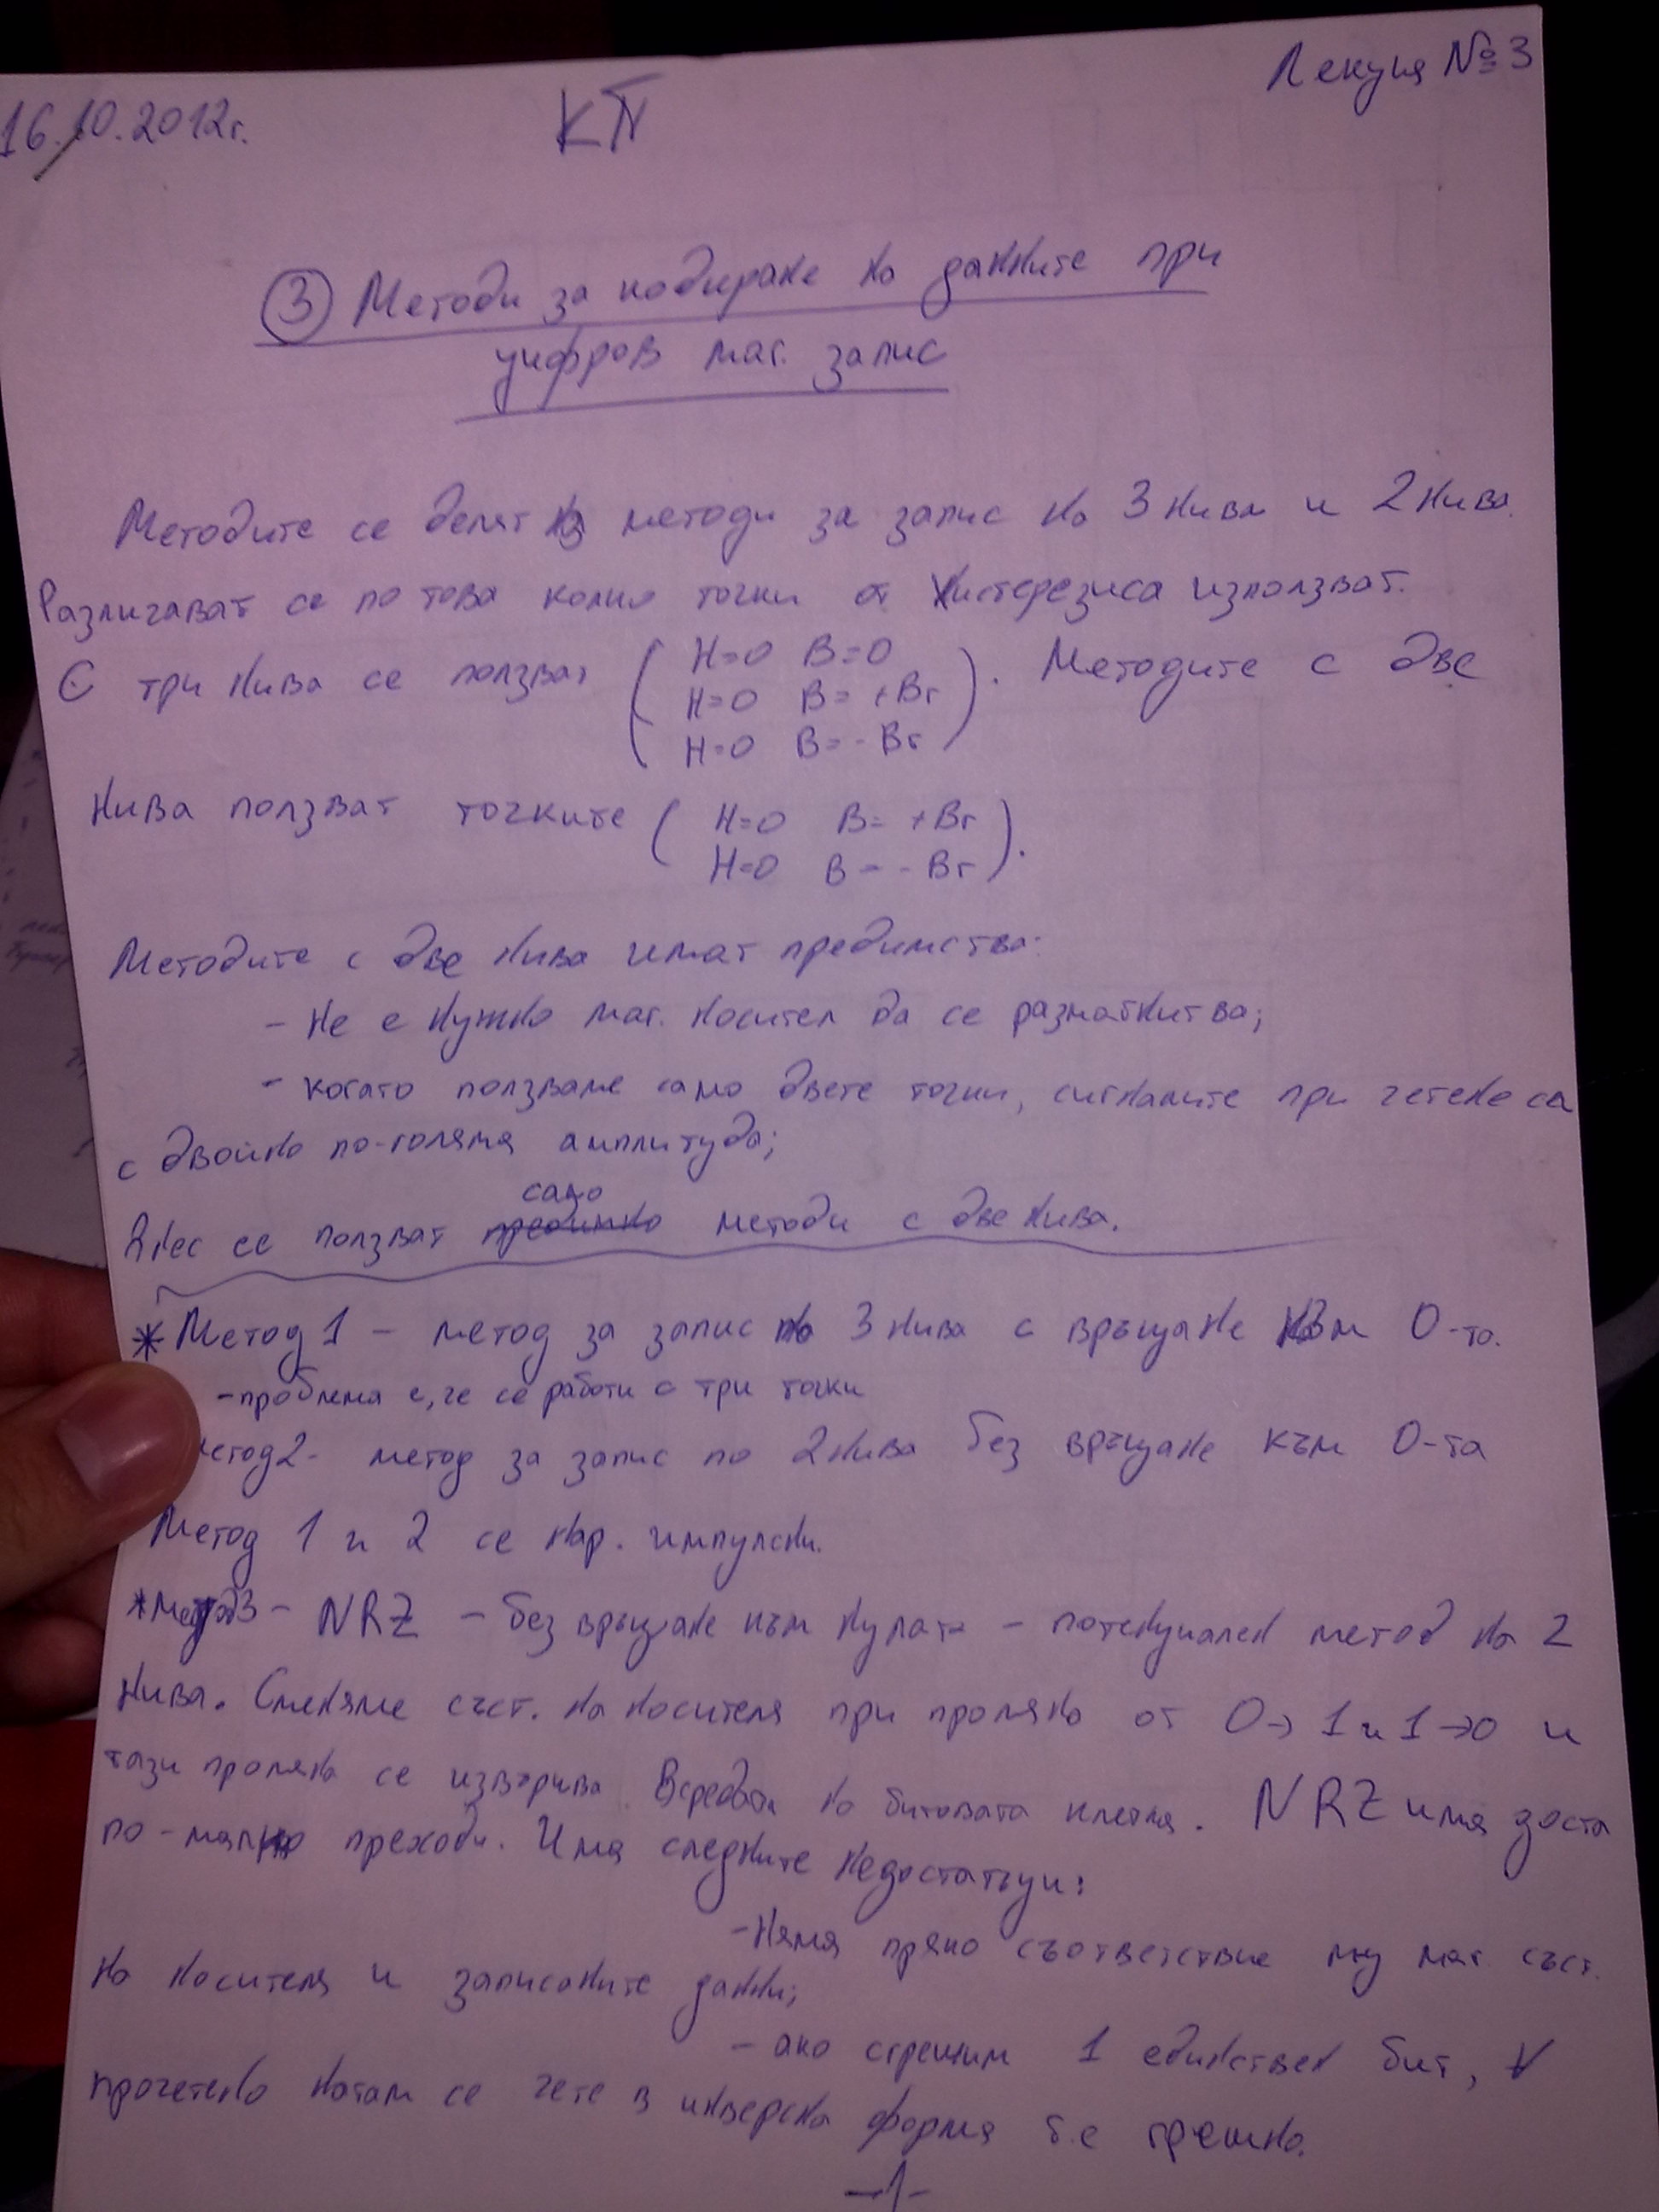 16.10.2012г.
КП
Лекция №3
③ Методи за кодиране на данните при
цифров маг. запис
Методите се делят на методи за запис на 3 нива и 2 нива.
Различават се по това колко точки от хистерезиса използват.
С три нива се ползват ( H=0 B=0
H=0 B=+Br
H=0 B=-Br ). Методите с две
нива ползват точките ( H=0 B=+Br
H=0 B=-Br ).
Методите с две нива имат предимства:
- не е нужно маг. носител да се размагнитва;
- когато ползваме само двете точки, сигналите при четене са
с двойно по-голяма амплитуда;
само
Днес се ползват предимно методи с две нива.
* Метод 1 - метод за запис на 3 нива с връщане към 0-та.
- проблема е, че се работи с три точки
метод2- метод за запис по 2 нива без връщане към 0-та
Метод 1 и 2 се нар. импулсни.
* Метод3 - NRZ - без връщане към нулата - потенциален метод на 2
нива. Сменяме съст. на носителя при промяна от 0→1 и 1→0 и
тази промяна се извършва в средата на битовата клетка. NRZ има доста
по-малко преходи. Има следните недостатъци:
- Няма пряко съответствие м/у маг. съст.
на носителя и записаните данни;
- ако сгрешим 1 единствен бит, ∀
прочетено натам се чете в инверсна форма т.е грешно.
-1-